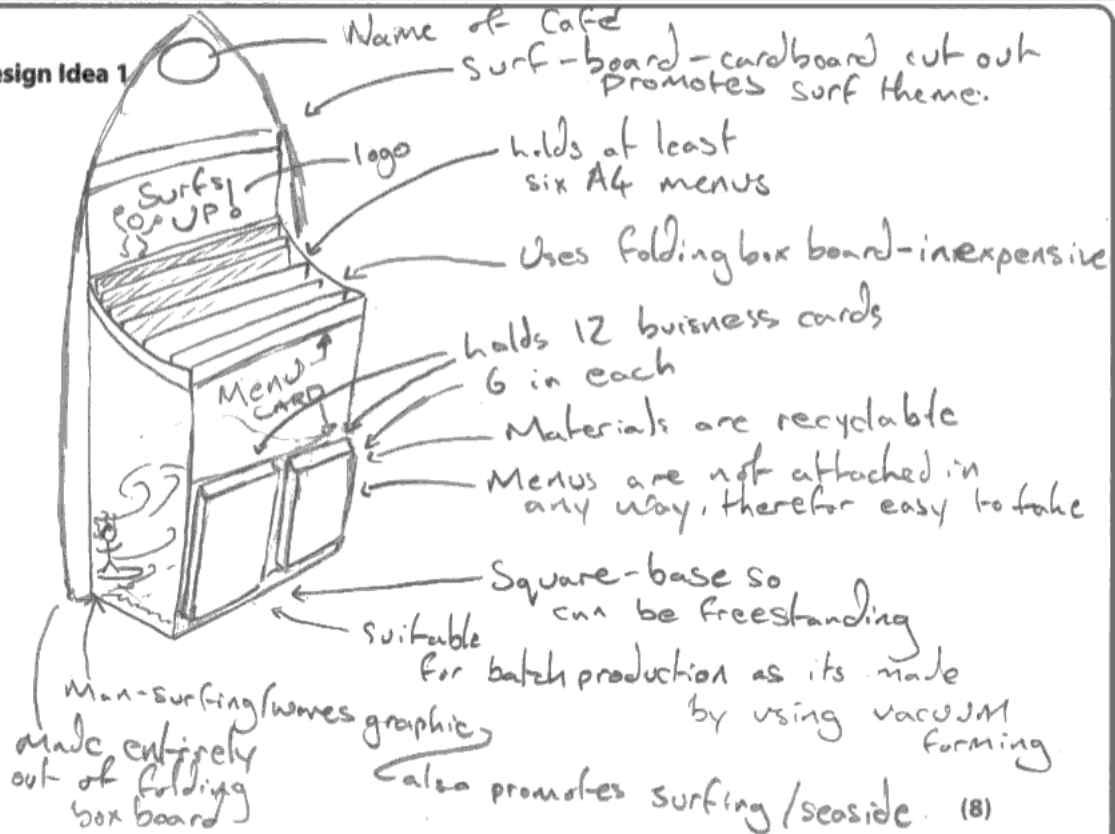 esign Idea 1
Name of Cafe
Surf-board-cardboard cut out
promotes surf theme.
logo
holds at least
six A4 menus
Surfs
UP!
Uses folding box board-inexpensive
holds 12 buisness cards
6 in each
Menu
CARD
Materials are recyclable
Menus are not attached in
any way, therefor easy to take
Square-base so
can be freestanding
suitable
for batch production as its made
by using vacuum
forming
Man-surfing/waves graphic
made entirely
out of folding
box board
also promotes surfing/seaside.
(8)